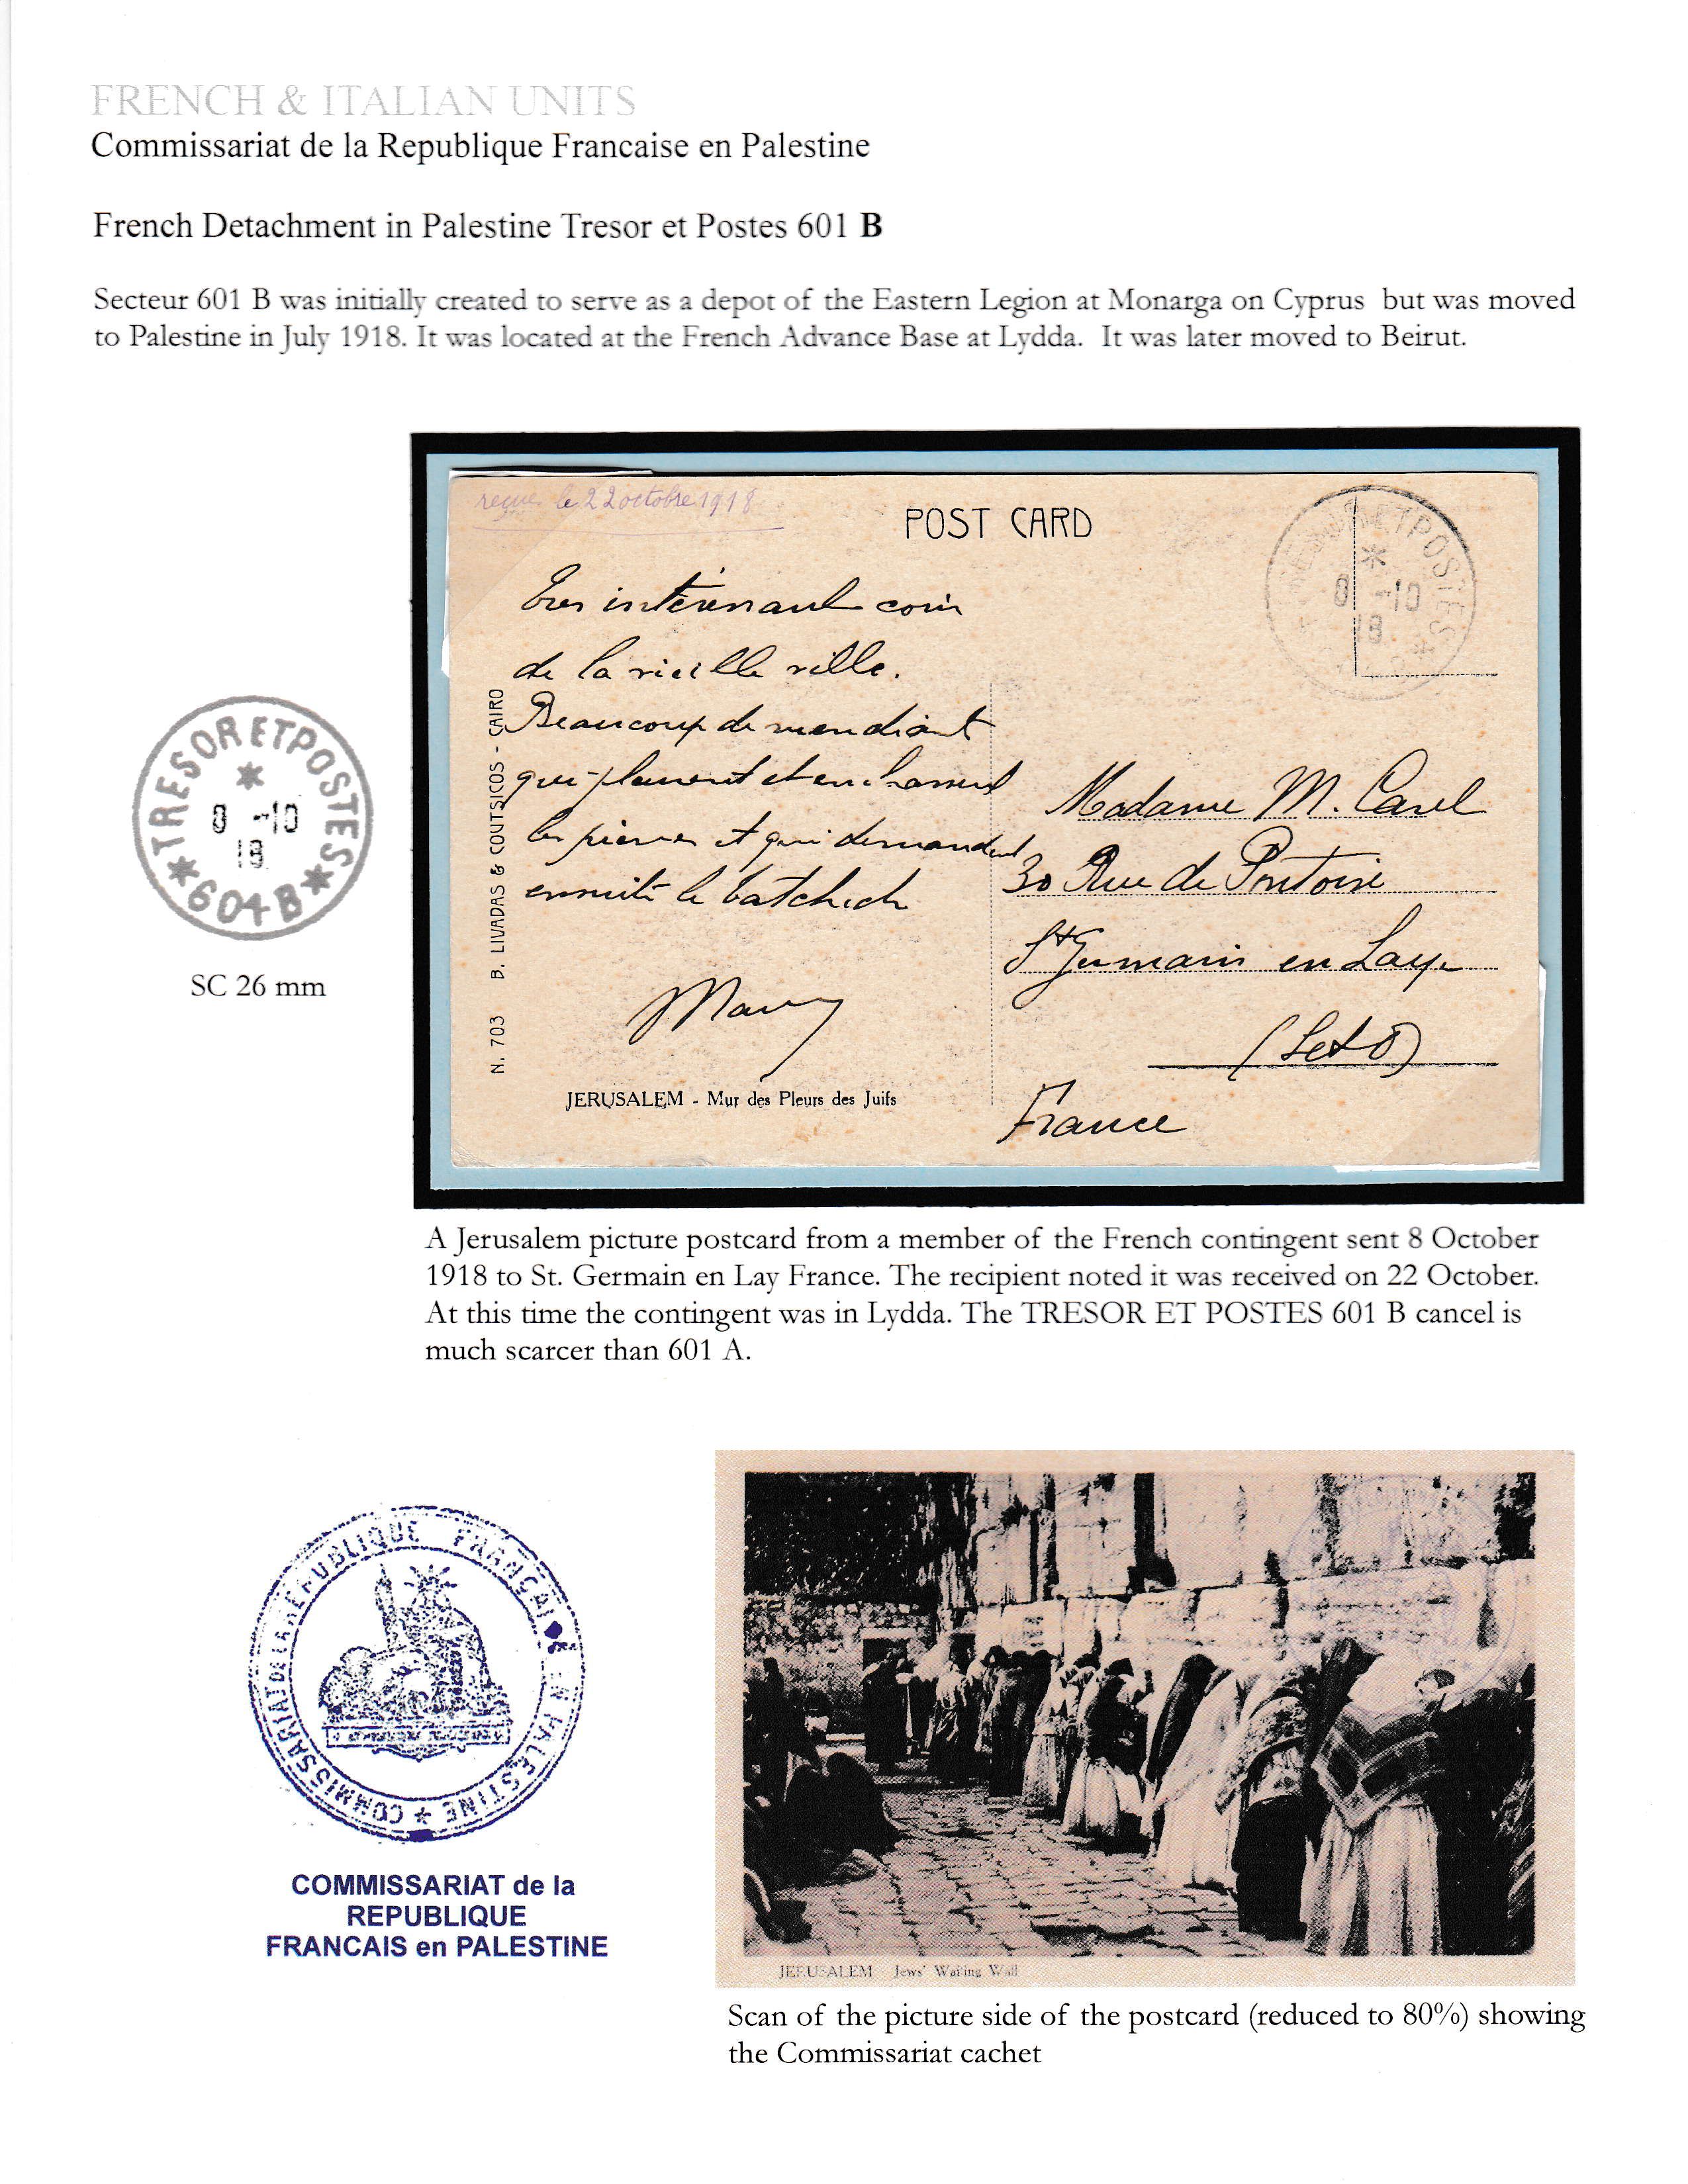 FRENCH & ITALIAN UNITS
Commissariat de la Republique Francaise en Palestine
French Detachment in Palestine Tresor et Postes 601 B
Secteur 601 B was initially created to serve as a depot of the Eastern Legion at Monarga on Cyprus but was moved
to Palestine in July 1918. It was located at the French Advance Base at Lydda. It was later moved to Beirut.
reçue le 22 octobre 1918
POST CARD
TRESOR ET POSTES
8 -10
18
Très intéressant coin
de la vieille ville.
Beaucoup de mendiant
qui pleurent et embrassent
les pierres et qui demandent
ensuite le batchich
Madame M. Carel
30 Rue de Pontoise
St Germain en Laye
(S et O)
France
N. 703 B. LIVADAS & COUTSICOS - CAIRO
JERUSALEM - Mur des Pleurs des Juifs
*TRESOR ET POSTES*
8 -10
18
604 B
SC 26 mm
A Jerusalem picture postcard from a member of the French contingent sent 8 October
1918 to St. Germain en Lay France. The recipient noted it was received on 22 October.
At this time the contingent was in Lydda. The TRESOR ET POSTES 601 B cancel is
much scarcer than 601 A.
COMMISSARIAT DE LA REPUBLIQUE FRANCAISE EN PALESTINE *
COMMISSARIAT de la
REPUBLIQUE
FRANCAIS en PALESTINE
JERUSALEM Jews' Wailing Wall
Scan of the picture side of the postcard (reduced to 80%) showing
the Commissariat cachet